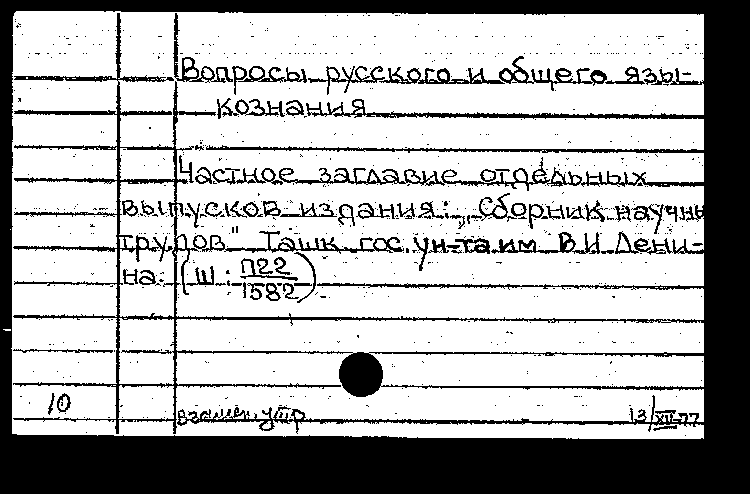 Вопросы русского и общего язы-
кознания
Частное заглавие отдельных
выпусков издания: „Сборник научны
трудов" Ташк гос ун-та им В.И Лени-
на. (Ш: П22
1582).
10 взамен. утр 13/XII-77